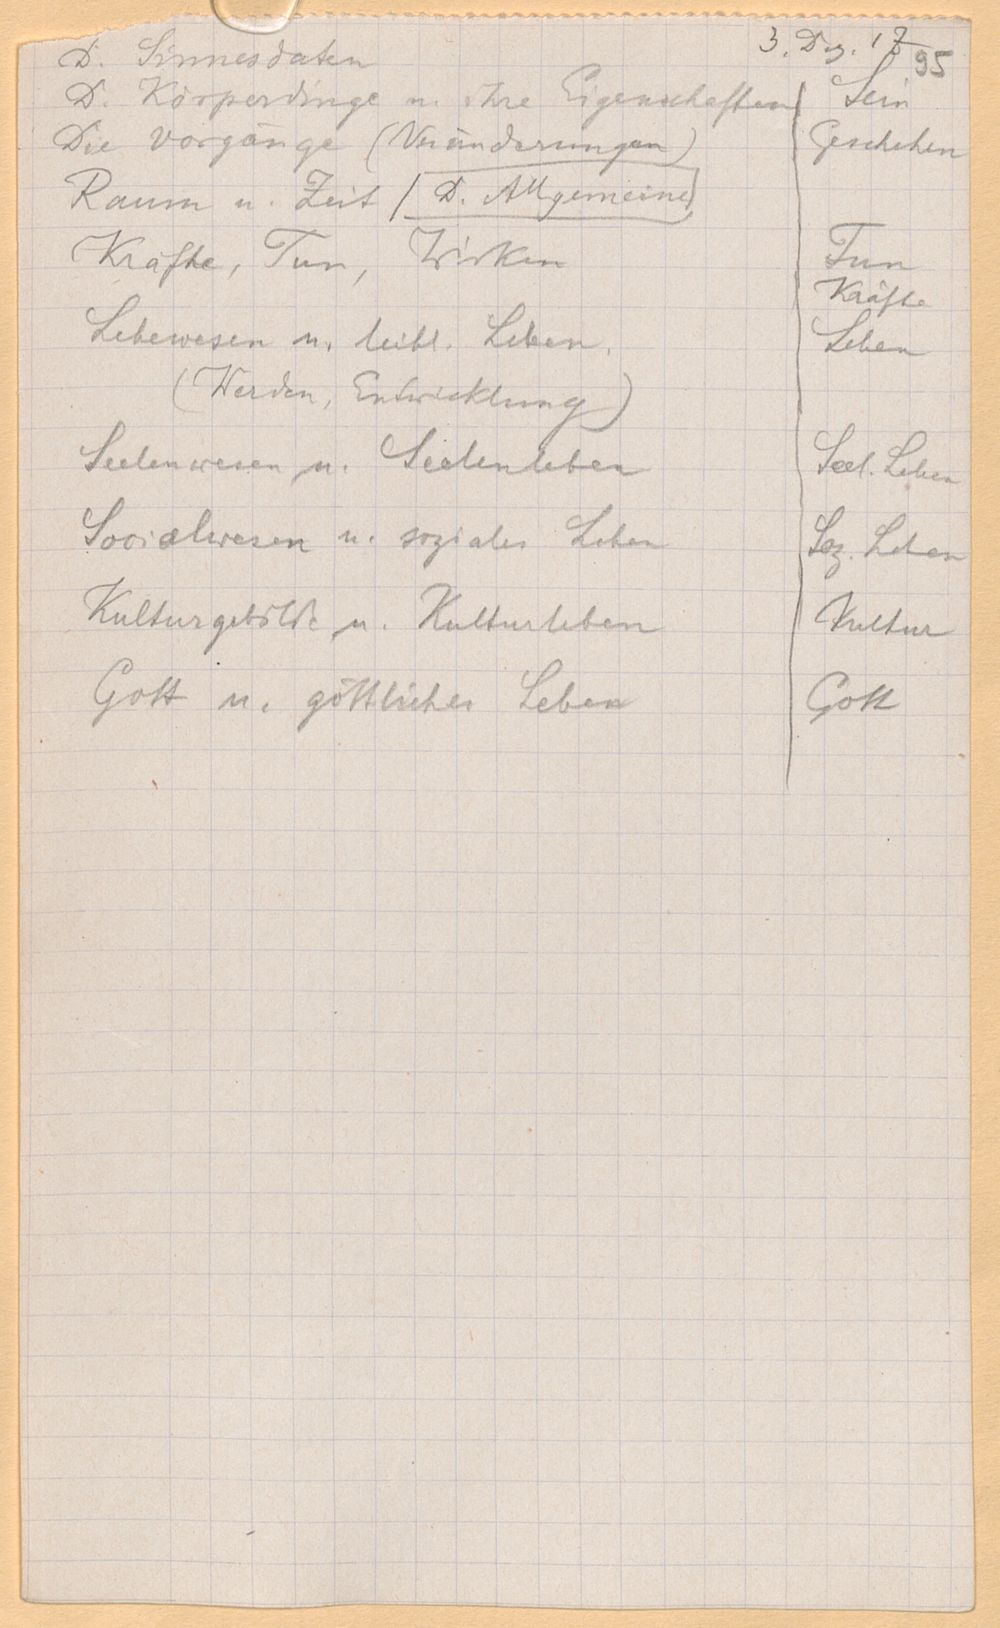 3. Dez. 17
95
D. Sinnesdaten
D. Körperdinge u. ihre Eigenschaften | Sein
Die Vorgänge (Veränderungen) | Geschehen
Raum u. Zeit / D. Allgemeine
Kräfte, Tun, Wirken | Tun
Kräfte
Lebewesen u. leibl. Leben. | Leben
(Werden, Entwicklung)
Seelenwesen u. Seelenleben | Seel. Leben
Socialwesen u. soziales Leben | Soz. Leben
Kulturgebilde u. Kulturleben | Kultur
Gott u. göttliches Leben | Gott